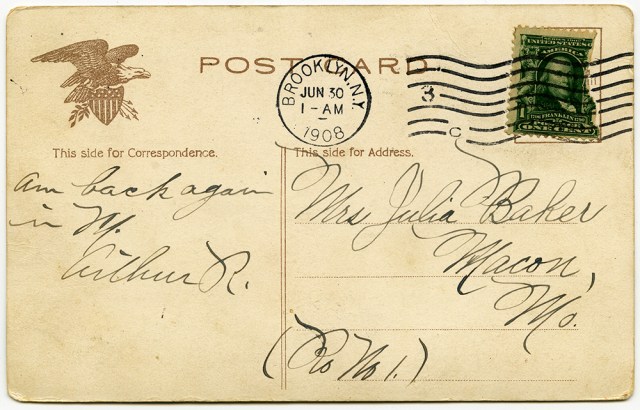 POST CARD
BROOKLYN, N.Y.
JUN 30
1-AM
1908
3
C
UNITED STATES
OF AMERICA
FRANKLIN
ONE CENT
This side for Correspondence.
This side for Address.
am back again
in N.
Arthur R.
Mrs Julia Baker
Macon,
Mo.
(Ro No 1.)